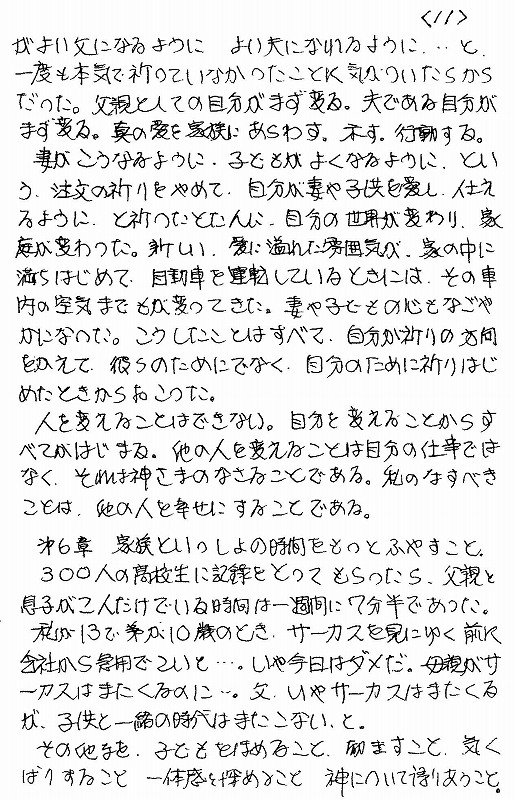 <11>
がよい父になるように よい夫になれるように…と、
一度も本気で祈っていなかったことに気がついたらから
だった。父親としての自分がまず変る。夫である自分が
まず変る。真の愛を家族にあらわす。示す。行動する。
妻がこうなるように、子どもがよくなるように、とい
う、注文の祈りをやめて、自分が妻や子供を愛し、仕え
るように、と祈ったとたんに、自分の世界が変わり、家
庭が変わった。新しい、愛に溢れた雰囲気が、家の中に
満ちはじめて、自動車を運転しているときには、その車
内の空気までもが変ってきた。妻や子どもの心もなごや
かになった。こうしたことはすべて、自分が祈りの方向
をかえて、彼らのためにでなく、自分のために祈りはじ
めたときからおこった。
人を変えることはできない。自分を変えることからす
べてがはじまる。他の人を変えることは自分の仕事では
なく、それは神さまのなさることである。私のなすべき
ことは、他の人を幸せにすることである。
第6章 家族といっしょの時間をもっとふやすこと。
300人の高校生に記録をとってもらったら、父親と
息子が二人だけでいる時間は一週間に7分半であった。
私が13で弟が10歳のとき、サーカスを見にゆく前に
会社から急用でこいと…。いや今日はダメだ。母親がサ
ーカスはまたくるのに…。父、いやサーカスはまたくる
が、子供と一緒の時代はまたこない、と。
その他まを、子どもをほめること、励ますこと、気く
ばりすること 一体感を深めること 神について語りあうこと。